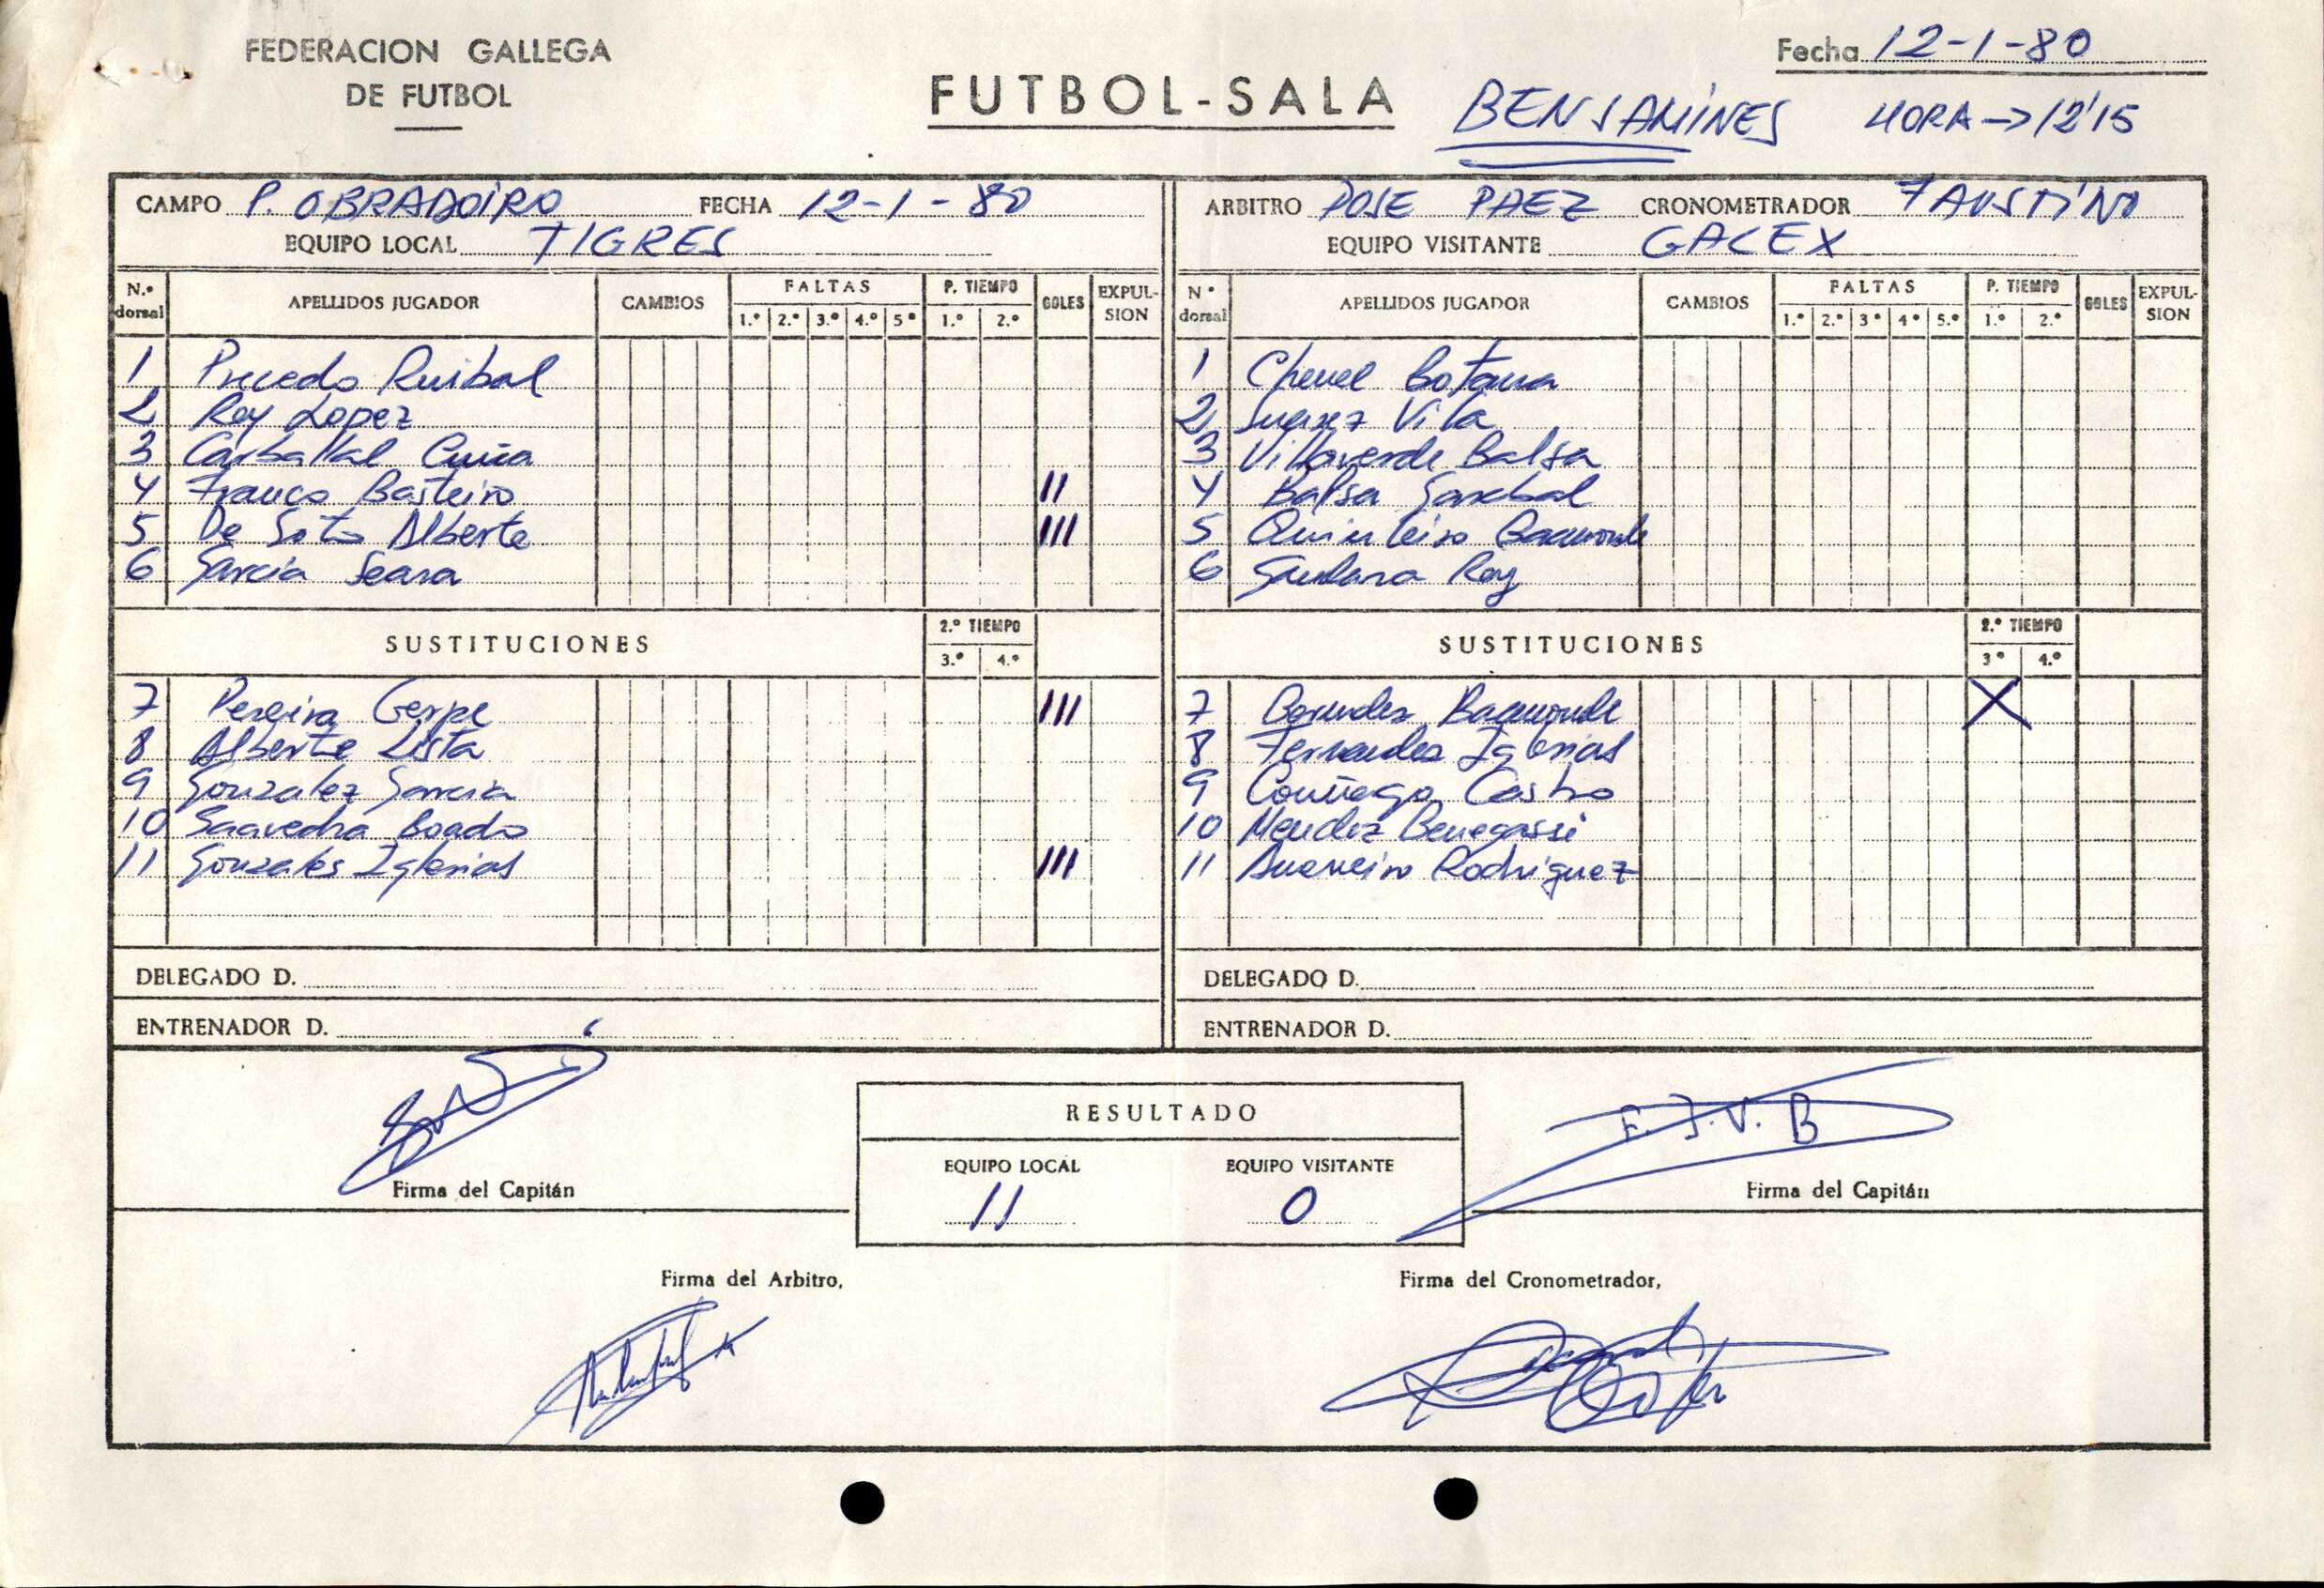 FEDERACION GALLEGA
DE FUTBOL
FUTBOL-SALA
BENJAMINES
Fecha 12-1-80
HORA → 12'15
CAMPO P. OBRADOIRO FECHA 12-1-80
EQUIPO LOCAL TIGRES
N.º dorsal APELLIDOS JUGADOR CAMBIOS FALTAS 1.º 2.º 3.º 4.º 5º P. TIEMPO 1.º 2.º GOLES EXPULSION
1 Precedo Ruibal
2 Rey Lopez
3 Carballal Cuiña
4 Franco Basteiro II
5 De Soto Alberte III
6 Garcia Seara
SUSTITUCIONES 2.º TIEMPO 3.º 4.º
7 Pereira Gerpe III
8 Alberte Lista
9 Gonzalez Garcia
10 Saavedra Boado
11 Gonzales Iglesias III
DELEGADO D.
ENTRENADOR D.
ARBITRO JOSE PAEZ CRONOMETRADOR FAUSTINO
EQUIPO VISITANTE GALEX
Nº dorsal APELLIDOS JUGADOR CAMBIOS FALTAS 1.º 2.º 3º 4º 5.º P. TIEMPO 1.º 2.º GOLES EXPULSION
1 Chenel Botana
2 Suarez Vila
3 Villaverde Balsa
4 Balsa
5 Quinteiro Baamonde
6 Santana Rey
SUSTITUCIONES 2.º TIEMPO 3º 4.º
7 Baamonde X
8 Fernandez Iglesias
9 Castro
10 Mendez Benegassi
11 Rodriguez
DELEGADO D.
ENTRENADOR D.
Firma del Capitán
RESULTADO
EQUIPO LOCAL EQUIPO VISITANTE
11 0
F.J.V.B
Firma del Capitán
Firma del Arbitro,
Firma del Cronometrador,